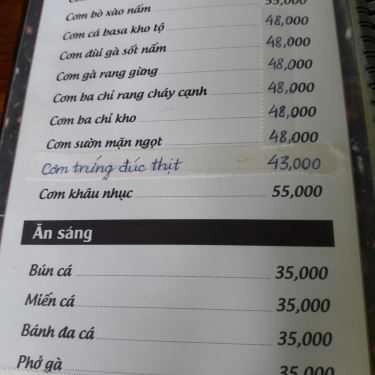 Cơm bò xào nấm 55,000
Cơm cá basa kho tộ 48,000
Cơm đùi gà sốt nấm 48,000
Cơm gà rang gừng 48,000
Cơm ba chỉ rang cháy cạnh 48,000
Cơm ba chỉ kho 48,000
Cơm sườn mặn ngọt 48,000
Cơm trứng đúc thịt 43,000
Cơm khâu nhục 55,000
Ăn sáng
Bún cá 35,000
Miến cá 35,000
Bánh đa cá 35,000
Phở gà 35,000